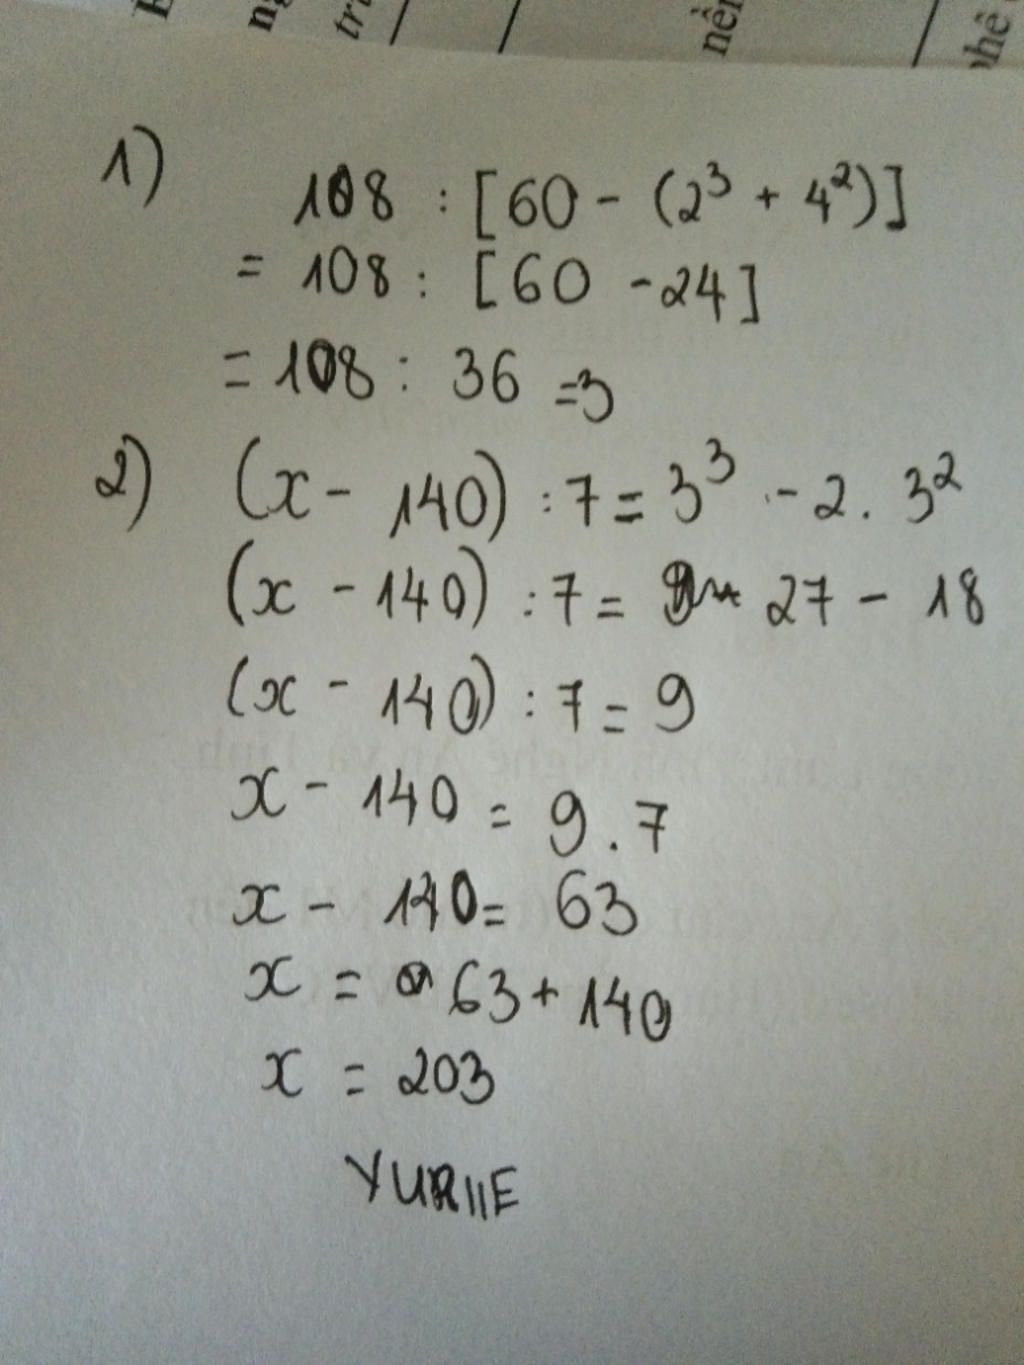 nền
1) 108 : [60 - (2³ + 4²)]
= 108 : [60 - 24]
= 108 : 36 = 3
2) (x - 140) : 7 = 3³ - 2 . 3²
(x - 140) : 7 = 27 - 18
(x - 140) : 7 = 9
x - 140 = 9 . 7
x - 140 = 63
x = 63 + 140
x = 203
YURIIE